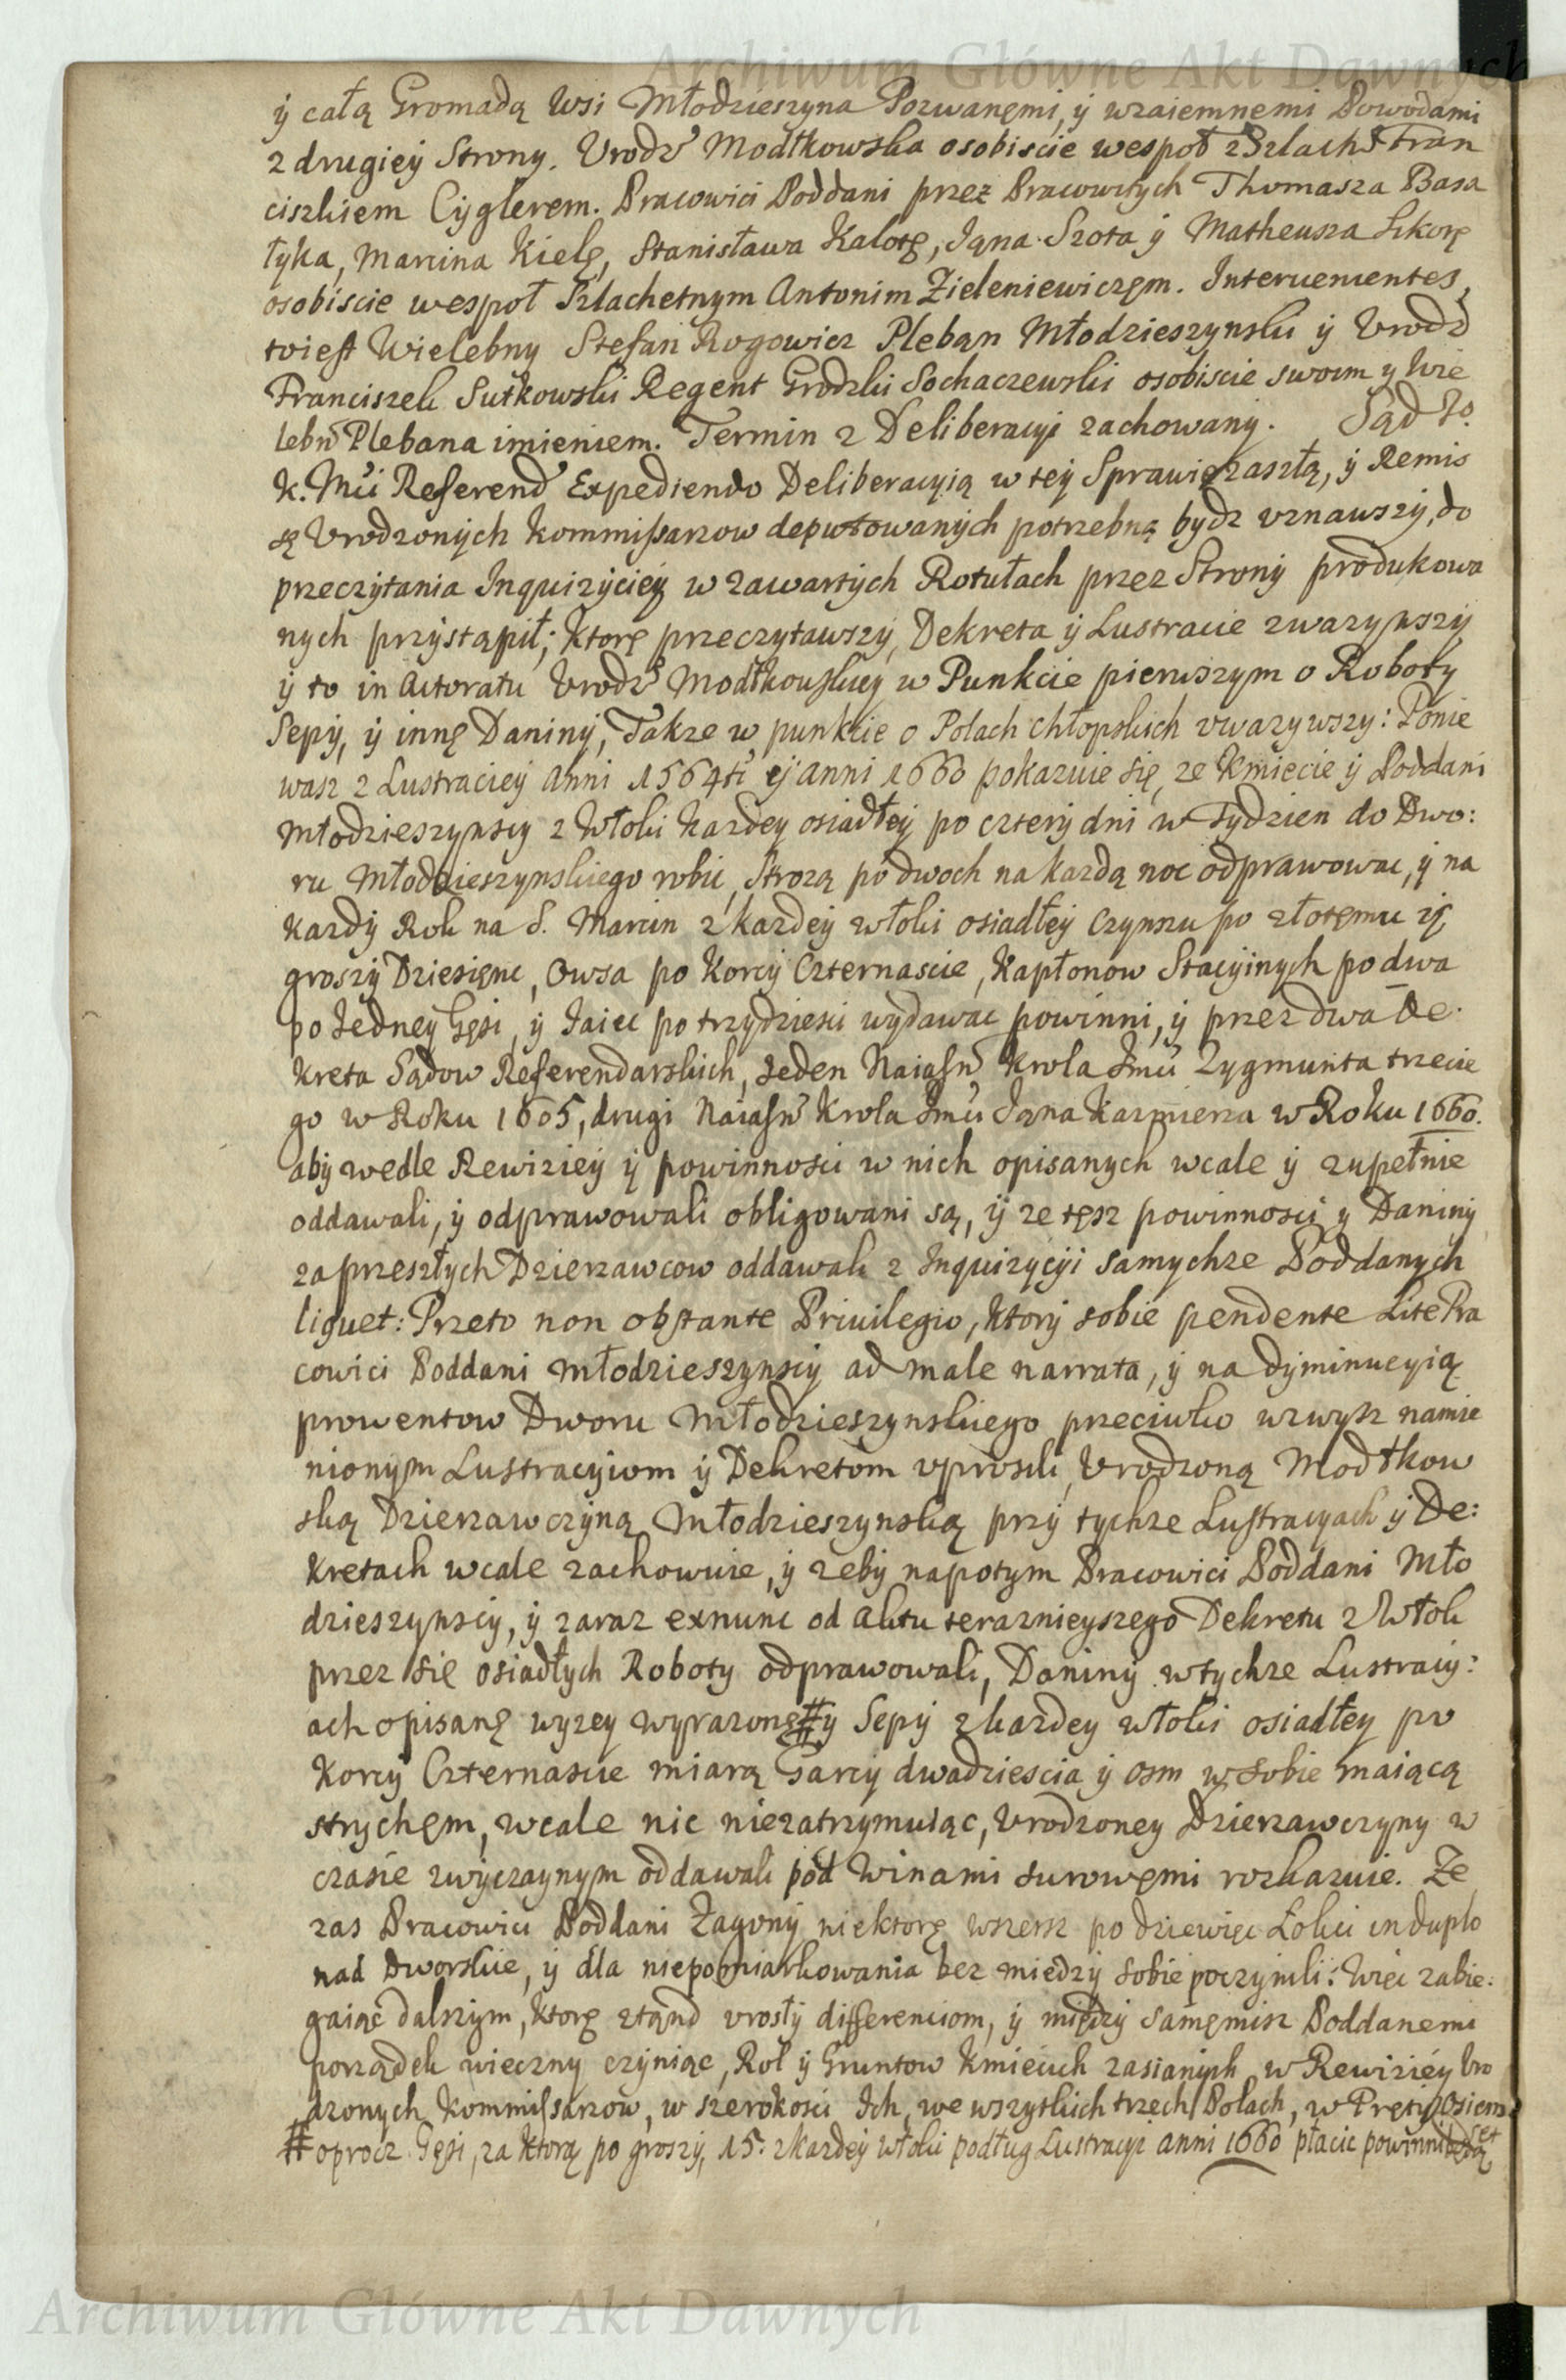 Archiwum Główne Akt Dawnych
ÿ całą Gromadą Wsi Młodzieszyna Pozwanęmi, ÿ wzaiemnemi Dowodami
z drugieÿ Strony. Urodz Modłkowska osobiscie wespoł z Szlach Fran
ciszkiem Cÿglerem. Pracowici Poddani przez Pracowitych Thomasza Basa
łyka, Marcina Kielę, Stanisława Kalotę, Iąna Szota ÿ Matheusza Sikorę
osobiscie wespoł Szlachetnym Antonim Zieleniewiczęm. Interuenientes,
toiest Wielebny Stefan Rogowicz Pleban Młodzieszynski ÿ Urodz
Franciszek Sutkowski Regent Grodzki Sochaczewski osobiscie swoim y Wie
lebn Plebana imieniem. Termin z Deliberacyi zachowany. Sąd Jo.
K. Mci Referend Expediendo Deliberacyią w teÿ Sprawie zaszłą, ÿ Remis
sę Urodzonÿch Kommissarzow deputowanÿch potrzebną bydz uznawszÿ, do
przeczÿtania Inquizÿcieÿ w zawartÿch Rotułach przez Stronÿ produkowa
nych przÿstąpił; Ktorę przeczÿtawszÿ, Dekreta ÿ Lustracie zwazywszÿ
ÿ to in Actoratu Urodz Modłkowskieÿ w Punkcie pierwszym o Robotÿ
Sepÿ, ÿ innę Daninÿ, Takze w punkcie o Polach chłopskich uwazywszy: Ponie
wasz z Lustracieÿ Anni 1564ti ÿ anni 1660 pokazuie się, ze Kmiecie ÿ Poddani
Młodzieszynscy z Włoki Kazdeÿ osiadłeÿ po czterÿ dni w Tydzien do Dwo:
ru Młodzieszynskiego robic, Strozą po dwoch na kazdą noc odprawowac, ÿ na
kazdÿ Rok na S. Marcin z kazdeÿ włoki osiadłeÿ czynszu po złotęmu ÿ
groszÿ Dziesięnc, Owsa po Korcÿ Czternascie, Kapłonow Stacÿinych po dwa
po Jedneÿ Gęsi, ÿ Iaiec po trzydziesci wydawac powinni, ÿ przez dwa De:
kreta Sądow Referendarskich, Jeden Naiasn Krola Jmci Zygmunta trzecie
go w Roku 1605, drugi Naiasn Krola Jmci Iąna Kazmierza w Roku 1660.
abÿ wedle Rewizieÿ ÿ powinnosci w nich opisanych wcale ÿ zupełnie
oddawali, ÿ odprawowali obligowani są, ÿ ze tęsz powinnosci y Daninÿ
za przeszłych Dzierzawcow oddawali z Inquizÿcÿi samychze Poddanych
liquet: Przeto non obstante Priuilegio, Ktorÿ sobie pendente Lite Pra
cowici Poddani Młodzieszynscÿ ad male narrata, ÿ na dÿminucyią
prowentow Dworu Młodzieszynskiego przeciwko wzwysz namie
nionym Lustracÿiom ÿ Dekretom uprosili, Urodzoną Modłkow
ską Dzierzawczÿną Młodzieszynską przÿ tychze Lustracyach ÿ De:
kretach wcale zachowuie, ÿ zebÿ napotym Pracowici Poddani Mło
dzieszynscÿ, ÿ zaraz exnunc od aktu teraznieyszego Dekretu z Włok
przez się osiadłych Roboty odprawowali, Daninÿ w tychze Lustracÿ:
ach opisanę wyzey wyrazonę # ÿ Sepÿ z kazdey włoki osiadłey po
Korcÿ Czternascie miarą Garcÿ dwadziescia ÿ osm w sobie maiącą
strychęm, wcale nic niezatrzymuiąc, Urodzoney Dzierzawczyny w
czasie zwÿczaynym oddawali pod Winami surowęmi rozkazuie. Ze
zas Pracowici Poddani Zagonÿ niektorę wszersz po dziewięc Łokci in duplo
nad Dworskie, ÿ dla niepomiarkowania bez miedzÿ sobie poczÿnili: Więc zabie:
gaiąc dalszym, Ktorę ztąnd urosłÿ differenciom, ÿ międzÿ samęmisz Poddanemi
porządek wieczny czÿniąc, Rol ÿ Gruntow Kmiecich zasianÿch w Rewizieÿ Uro
dzonych Kommissarzow, w szerokosci Ich, we wszytkich trzech Polach, w Prętÿ Osiem
# oprocz Gęsi, za Ktorą po groszÿ 15. z kazdeÿ włoki podług Lustracyi anni 1660 płacic powinni
Archiwum Główne Akt Dawnych